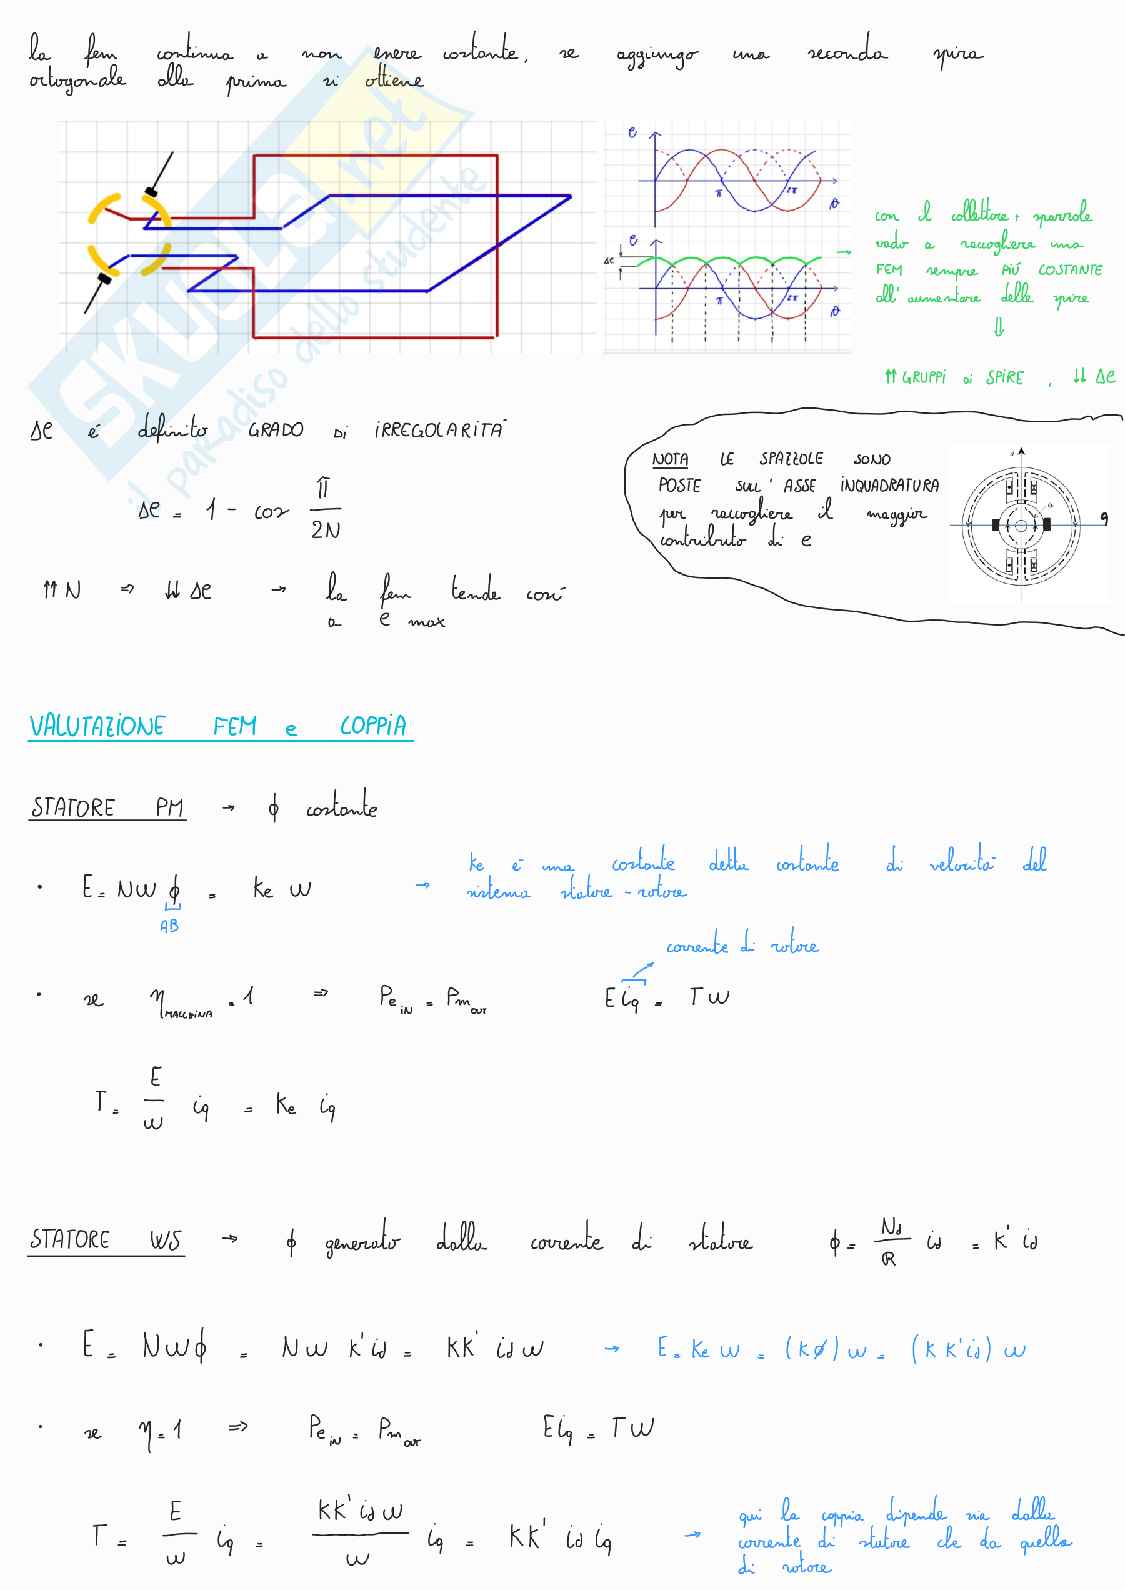 la fem continua a non essere costante, se aggiungo una seconda spira
ortogonale alla prima si ottiene
SKUOLA.net
il paradiso dello studente
e
π
2π
θ
e
Δe
π
2π
θ
con il collettore + spazzole
vado a raccogliere una
FEM sempre PIÚ COSTANTE
all'aumentare delle spire
⇓
⇈ GRUPPI di SPIRE , ⇊ Δe
Δe é definito GRADO Di iRREGOLARITÁ
Δe = 1 - cos π/2N
⇈ N ⇒ ⇊ Δe → la fem tende così
a e max
NOTA LE SPAZZOLE SONO
POSTE SULL'ASSE INQUADRATURA
per raccogliere il maggior
contributo di e
q
VALUTAZIONE FEM e COPPIA
STATORE PM → ϕ costante
· E = Nωϕ = Ke ω
AB
→ Ke é una costante detta costante di velocitá del
sistema statore - rotore
corrente di rotore
· se η MACCHINA = 1 ⇒ Pe IN = Pm OUT E iq = Tω
T = E/ω iq = Ke iq
STATORE WS → ϕ generato dalla corrente di statore ϕ = Nd/R id = K' id
· E = Nωϕ = Nω K'id = KK' id ω → E = Ke ω = (Kϕ) ω = (KK'id) ω
· se η = 1 ⇒ Pe IN = Pm OUT E iq = Tω
T = E/ω iq = KK' id ω/ω iq = KK' id iq
→ qui la coppia dipende sia dalla
corrente di statore che da quella
di rotore